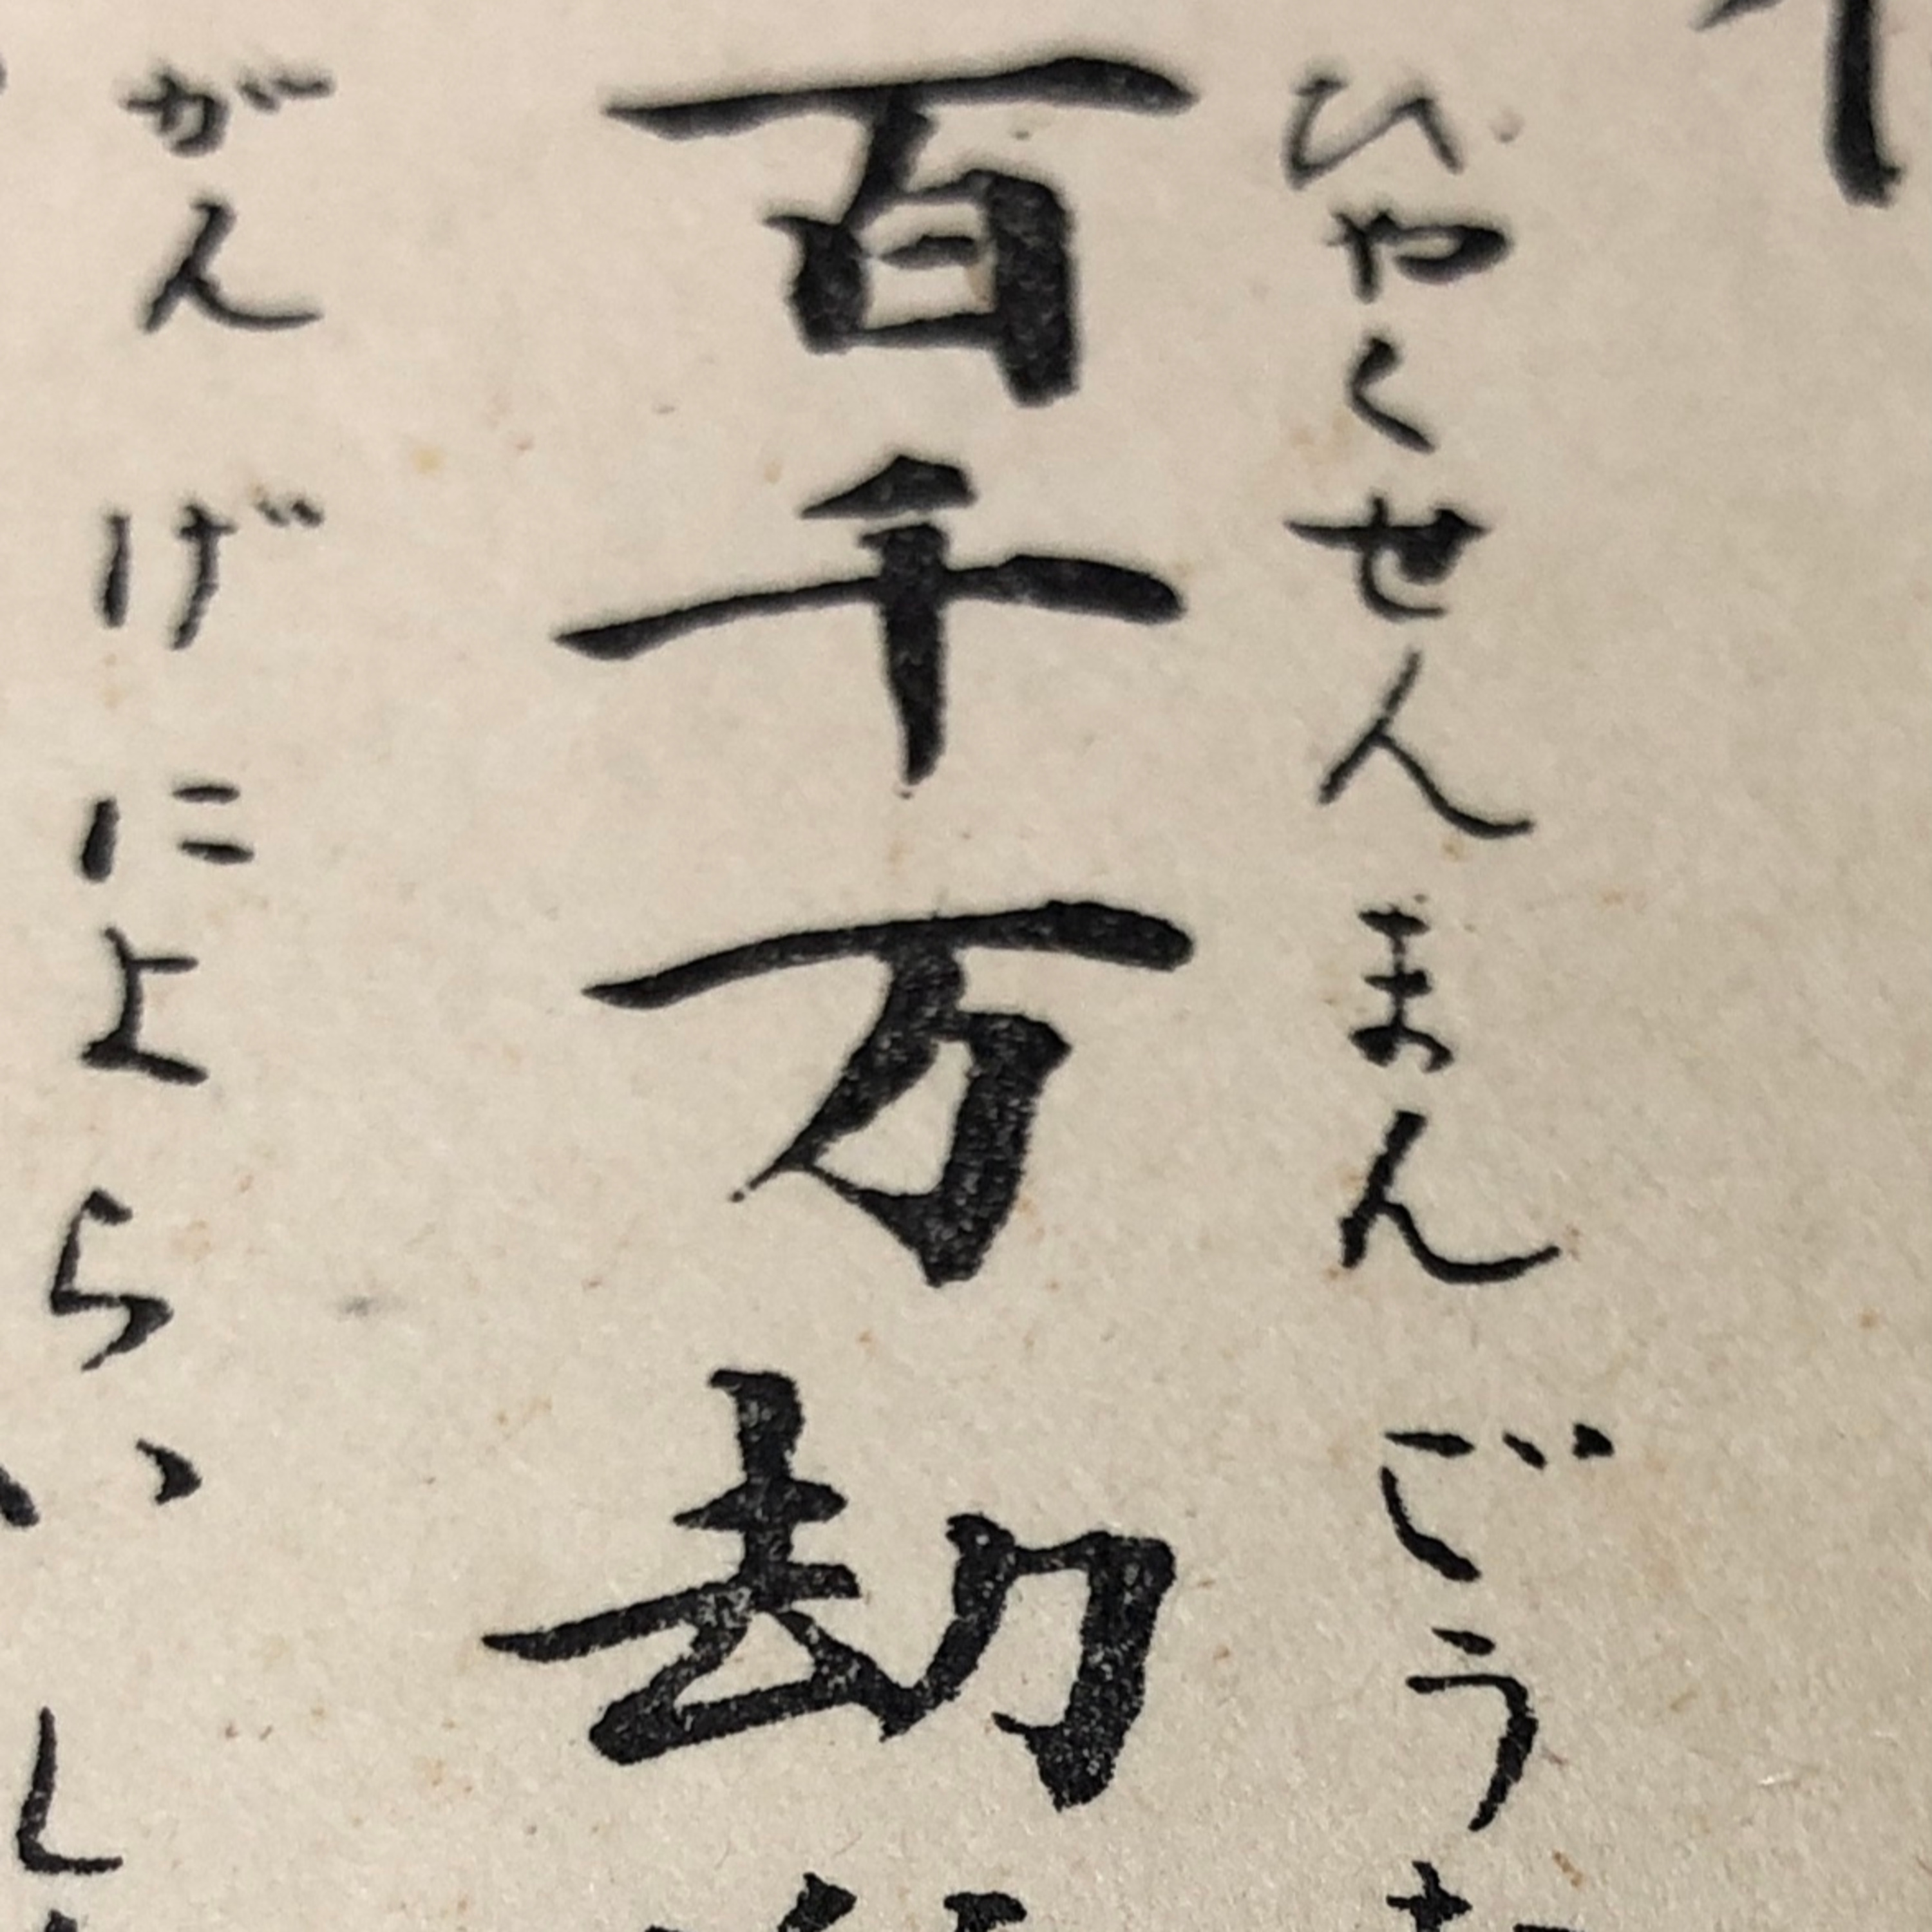 ひやくせんまん ごう
百千万劫
がん げ によらい し